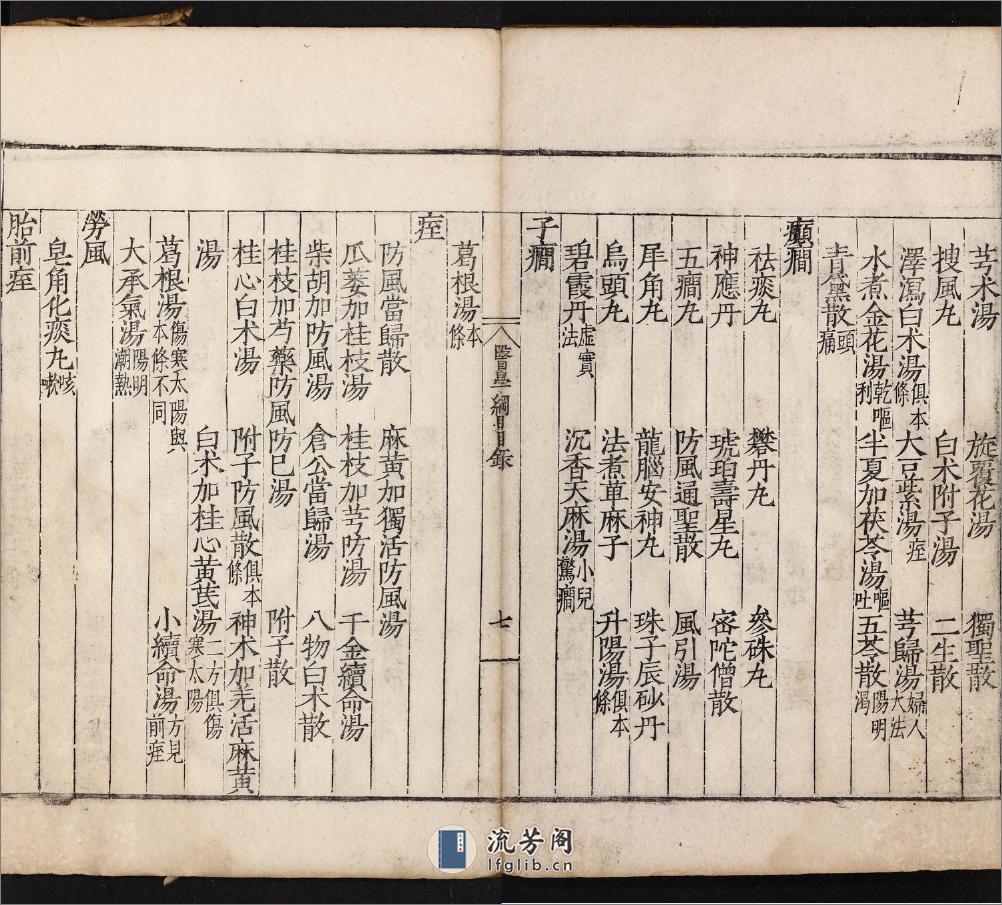 芎术湯 旋覆花湯 獨聖散
搜風丸 白术附子湯 二生散
澤瀉白术湯俱本條 大豆紫湯痓 芎歸湯婦人大法
水煮金花湯乾嘔利 半夏加茯苓湯嘔吐 五苓散陽明渴
青黛散頭痛
癲癎
祛痰丸 礬丹丸 參硃丸
神應丹 琥珀壽星丸 密陀僧散
五癎丸 防風通聖散 風引湯
犀角丸 龍腦安神丸 珠子辰砂丹
烏頭丸 法煮萆麻子 升陽湯俱本條
碧霞丹虛實法 沉香天麻湯小兒驚癎
子癎
醫學綱目目錄 七
葛根湯本條
痓
防風當歸散 麻黃加獨活防風湯
瓜蔞加桂枝湯 桂枝加芎防湯 千金續命湯
柴胡加防風湯 倉公當歸湯 八物白术散
桂枝加芍藥防風防已湯 附子散
桂心白术湯 附子防風散俱本條 神术加羌活麻黃
湯 白术加桂心黃芪湯二方俱傷寒太陽
葛根湯傷寒太陽與本條不同 小續命湯方見前痓
大承氣湯陽明潮熱
勞風
皂角化痰丸咳嗽
胎前痓
流芳阁
lfglib.cn